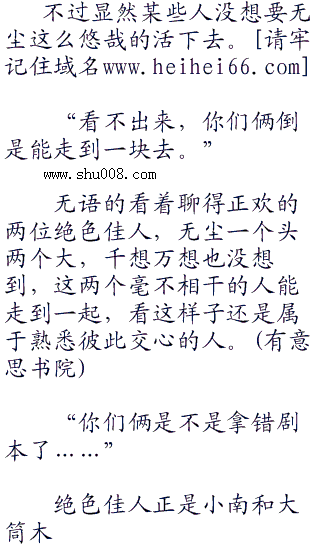 不过显然某些人没想要无
尘这么悠哉的活下去。[请牢
记住域名www.heihei66.com]
“看不出来，你们俩倒
是能走到一块去。”
www.shu008.com
无语的看着聊得正欢的
两位绝色佳人，无尘一个头
两个大，千想万想也没想
到，这两个毫不相干的人能
走到一起，看这样子还是属
于熟悉彼此交心的人。(有意
思书院)
“你们俩是不是拿错剧
本了……”
绝色佳人正是小南和大
筒木